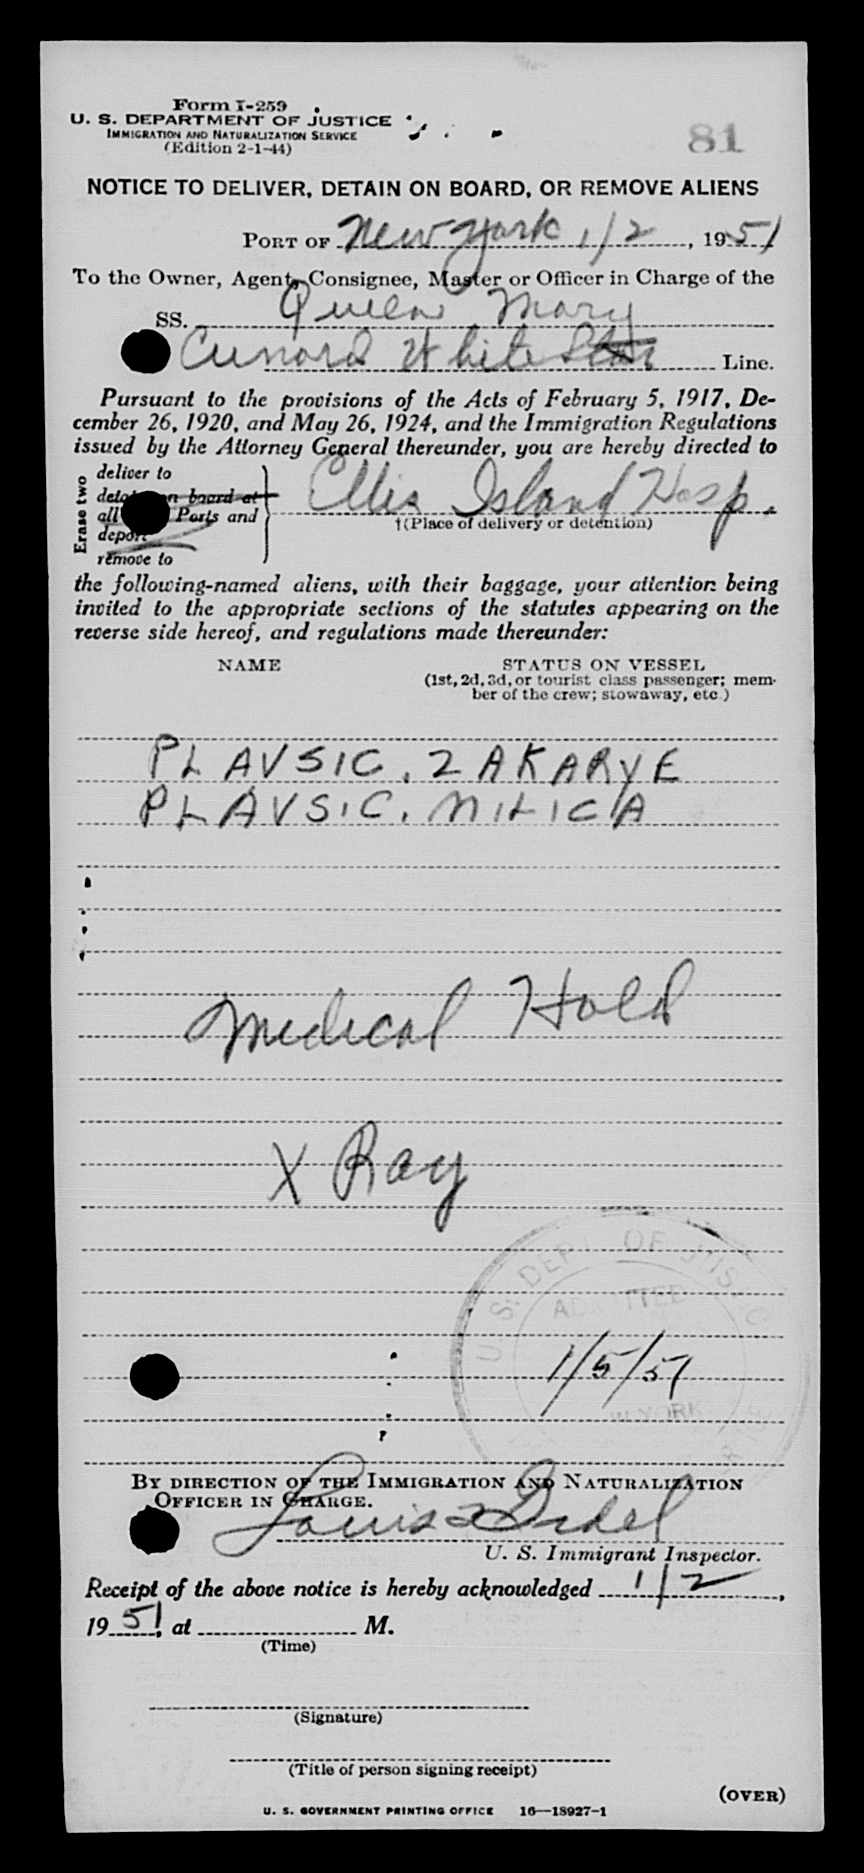 Form I-259
U. S. DEPARTMENT OF JUSTICE
IMMIGRATION AND NATURALIZATION SERVICE
(Edition 2-1-44)
81
NOTICE TO DELIVER, DETAIN ON BOARD, OR REMOVE ALIENS
PORT OF New York 1/2, 1951
To the Owner, Agent, Consignee, Master or Officer in Charge of the
SS. Queen Mary
Cunard White Star Line.
Pursuant to the provisions of the Acts of February 5, 1917, De-
cember 26, 1920, and May 26, 1924, and the Immigration Regulations
issued by the Attorney General thereunder, you are hereby directed to
Erase two
deliver to
on board at
all Ports and
deport
remove to
Ellis Island Hosp.
†(Place of delivery or detention)
the following-named aliens, with their baggage, your attention being
invited to the appropriate sections of the statutes appearing on the
reverse side hereof, and regulations made thereunder:
NAME STATUS ON VESSEL
(1st, 2d, 3d, or tourist class passenger; mem-
ber of the crew; stowaway, etc.)
PLAVSIC, ZAKARYE
PLAVSIC, MILICA
Medical Hold
X Ray
U. S. DEPT. OF JUSTICE
ADMITTED
1/5/51
W YORK
BY DIRECTION OF THE IMMIGRATION AND NATURALIZATION
OFFICER IN CHARGE.
Louis
U. S. Immigrant Inspector.
Receipt of the above notice is hereby acknowledged 1/2,
1951, at M.
(Time)
(Signature)
(Title of person signing receipt)
(OVER)
U. S. GOVERNMENT PRINTING OFFICE 16—18927-1